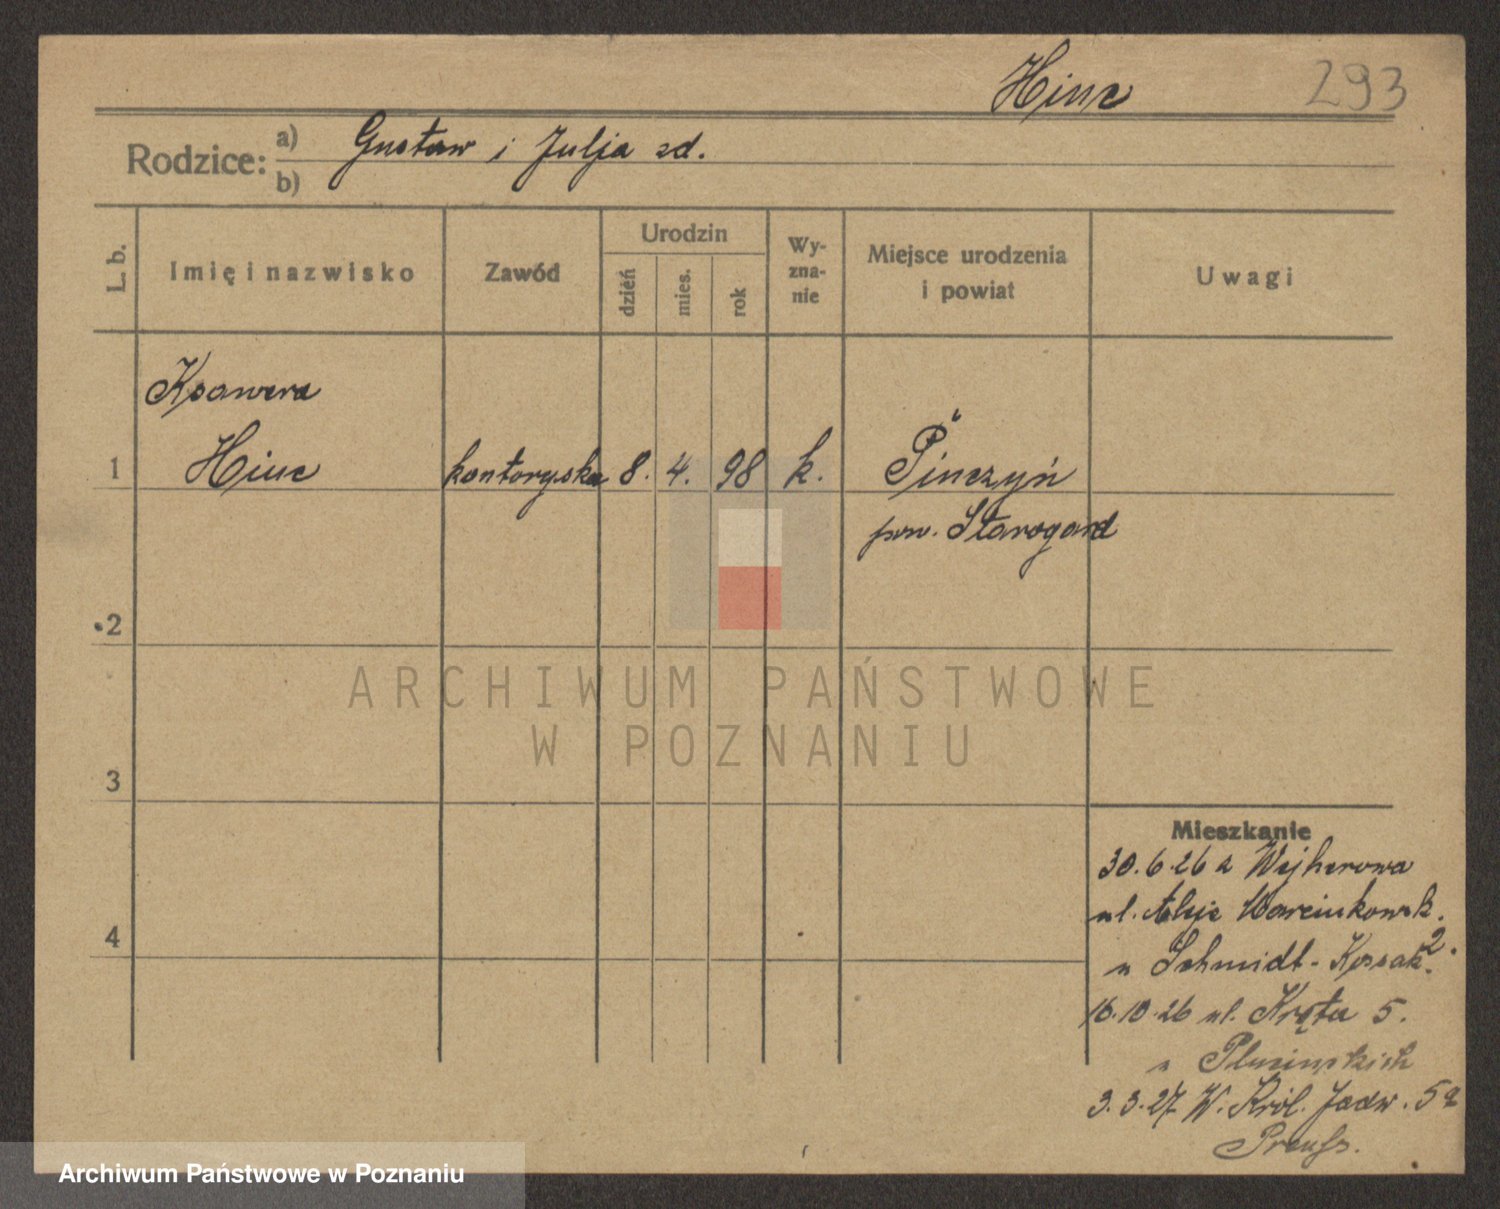 Hinc 293
Rodzice: a) Gustaw i Julja zd.
b)
L. b. Imię i nazwisko Zawód Urodzin dzień mies. rok Wyznanie Miejsce urodzenia i powiat Uwagi
Ksawera
1 Hinc kontorystka 8. 4. 98 k. Pinczyn
pow. Starogard
2
3
4
ARCHIWUM PAŃSTWOWE
W POZNANIU
Mieszkanie
30.6.26 z Wejherowa
ul. Aleje Marcinkowsk.
u Schmidt-Kossak. 2.
16.10.26 ul. Kręta 5.
u
3.3.27 W. Król. Jadw. 5a
Preuss.
Archiwum Państwowe w Poznaniu